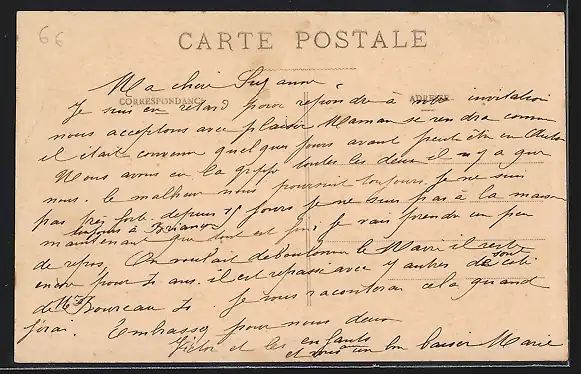 6€
CARTE POSTALE
CORRESPONDANCE
ADRESSE
Ma chère Suzanne
Je suis en retard pour répondre à votre invitation
nous acceptons avec plaisir Maman se rendra comme
il était convenu quelques jours avant peut être en
Nous avons eu la grippe toutes les deux il n'y a que
nous. le malheur nous poursuit toujours je ne suis
pas très forte depuis 15 jours je ne suis pas à la maison
toujours à
maintenant que tout est fini je vais prendre un peu
de repos. On voulait déboulonner le Maire il reste
encore pour 4 ans. il est repassé avec 4 autres de
de Mr . Je vous raconterai cela quand
j'irai. Embrassez pour nous deux
Victor et les enfants
et vous un bon baiser Marie